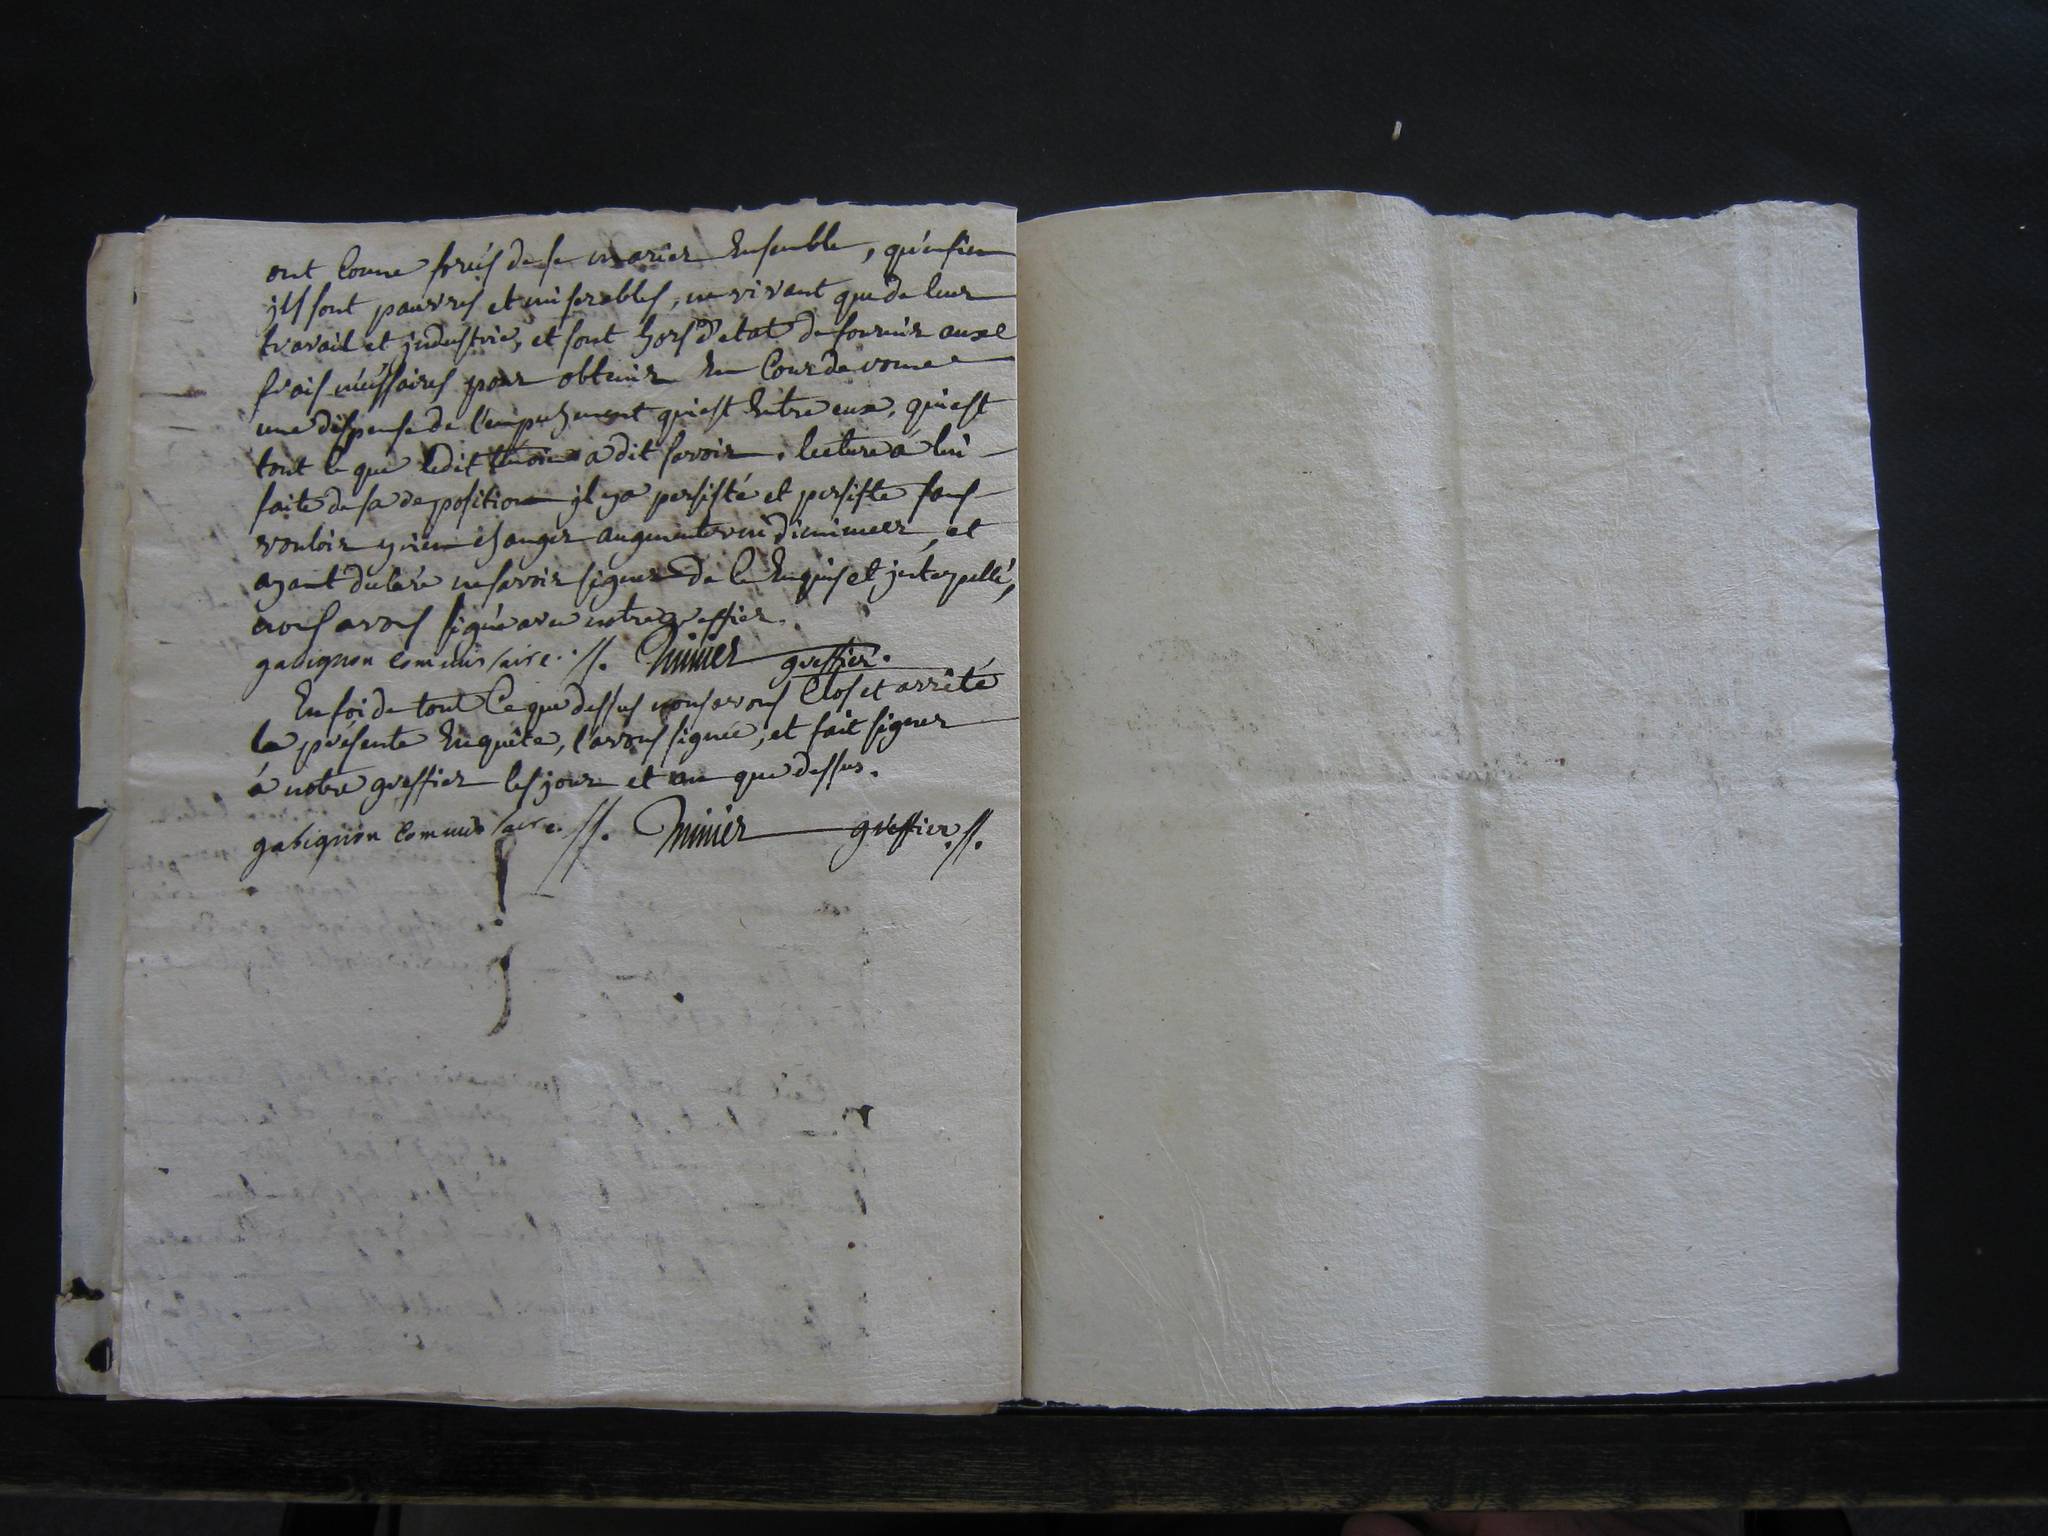 ont comme forcés de se marier Ensemble, qu'enfin
ils sont pauvres et miserables, ne vivant que de leur
travail et industrie, et sont hors d'etat de fournir aux
frais nécessaires pour obtenir En Cour de rome
une dispense de l'empechement qui est Entre eux, qui est
tout ce que ledit témoin a dit savoir. lecture a lui
faite de sa deposition il y a persisté et persiste sans
vouloir y rien changer augmenter ou diminuer, et
ayant declaré ne savoir signer de ce Enquis et interpellé,
nous avons signé avec notre greffier.
gabignon commissaire. //. Minier greffier.
En foi de tout Ce que dessus nous avons Clos et arrêté
la présente Enquête, l'avons signée, et fait signer
à notre greffier les jour et an que dessus.
gabignon commissaire //. Minier greffier. //.